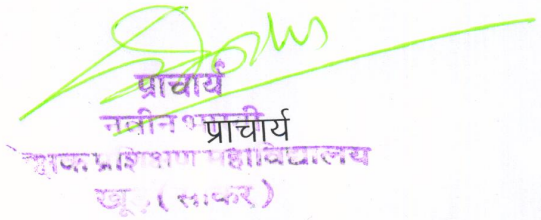 प्राचार्य
नवीन
प्राचार्य
शिक्षक प्रशिक्षण महाविद्यालय
खूड़ (सीकर)